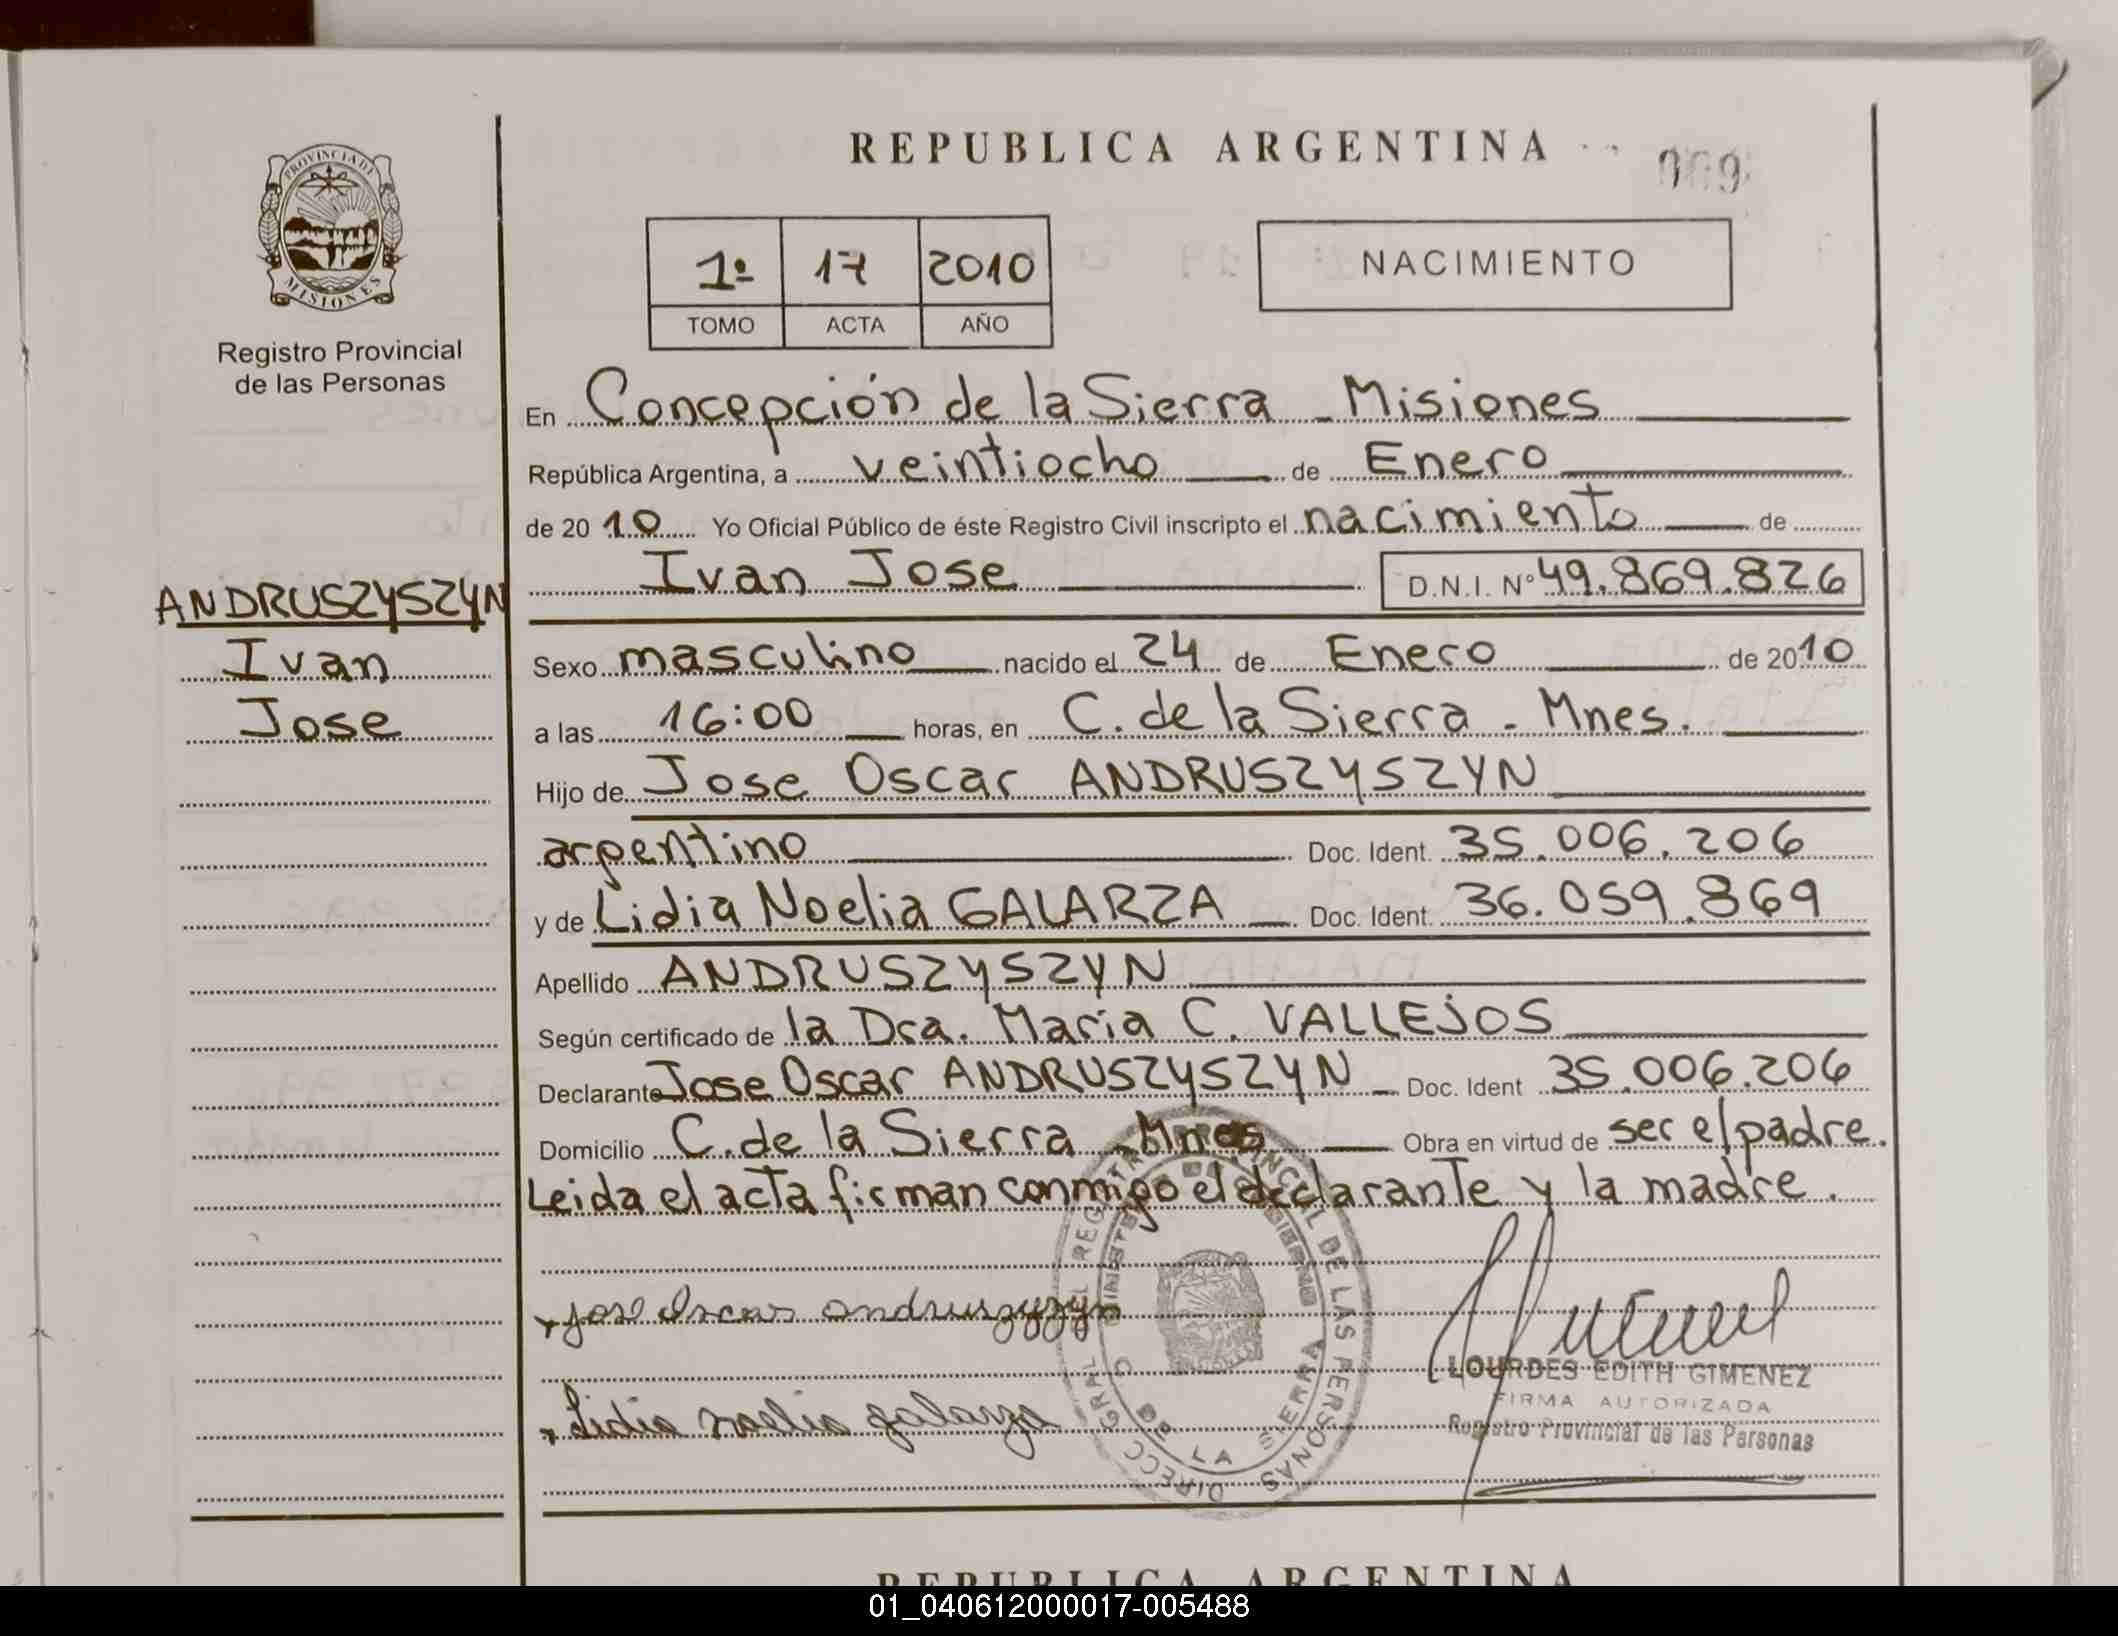 REPUBLICA ARGENTINA
069
PROVINCIA DE
MISIONES
Registro Provincial
de las Personas
1º 17 2010
TOMO ACTA AÑO
NACIMIENTO
En Concepción de la Sierra - Misiones
República Argentina, a veintiocho de Enero
de 2010 Yo Oficial Público de éste Registro Civil inscripto el nacimiento de
Ivan Jose D.N.I. Nº 49.869.826
ANDRUSZYSZYN
Ivan
Jose
Sexo masculino nacido el 24 de Enero de 2010
a las 16:00 horas, en C. de la Sierra - Mnes.
Hijo de Jose Oscar ANDRUSZYSZYN
argentino Doc. Ident. 35.006.206
y de Lidia Noelia GALARZA Doc. Ident. 36.059.869
Apellido ANDRUSZYSZYN
Según certificado de la Dra. Maria C. VALLEJOS
Declarante Jose Oscar ANDRUSZYSZYN Doc. Ident 35.006.206
Domicilio C. de la Sierra - Mnes Obra en virtud de ser el padre.
Leida el acta firman conmigo el declarante y la madre.
Jose Oscar andruszyszyn
Lidia noelia galarza
DIRECC GRAL DEL REGISTRO PROVINCIAL DE LAS PERSONAS
MINISTERIO DE GOBIERNO
C. DE LA SIERRA
LOURDES EDITH GIMENEZ
FIRMA AUTORIZADA
Registro Provincial de las Personas
REPUBLICA ARGENTINA
01_040612000017-005488